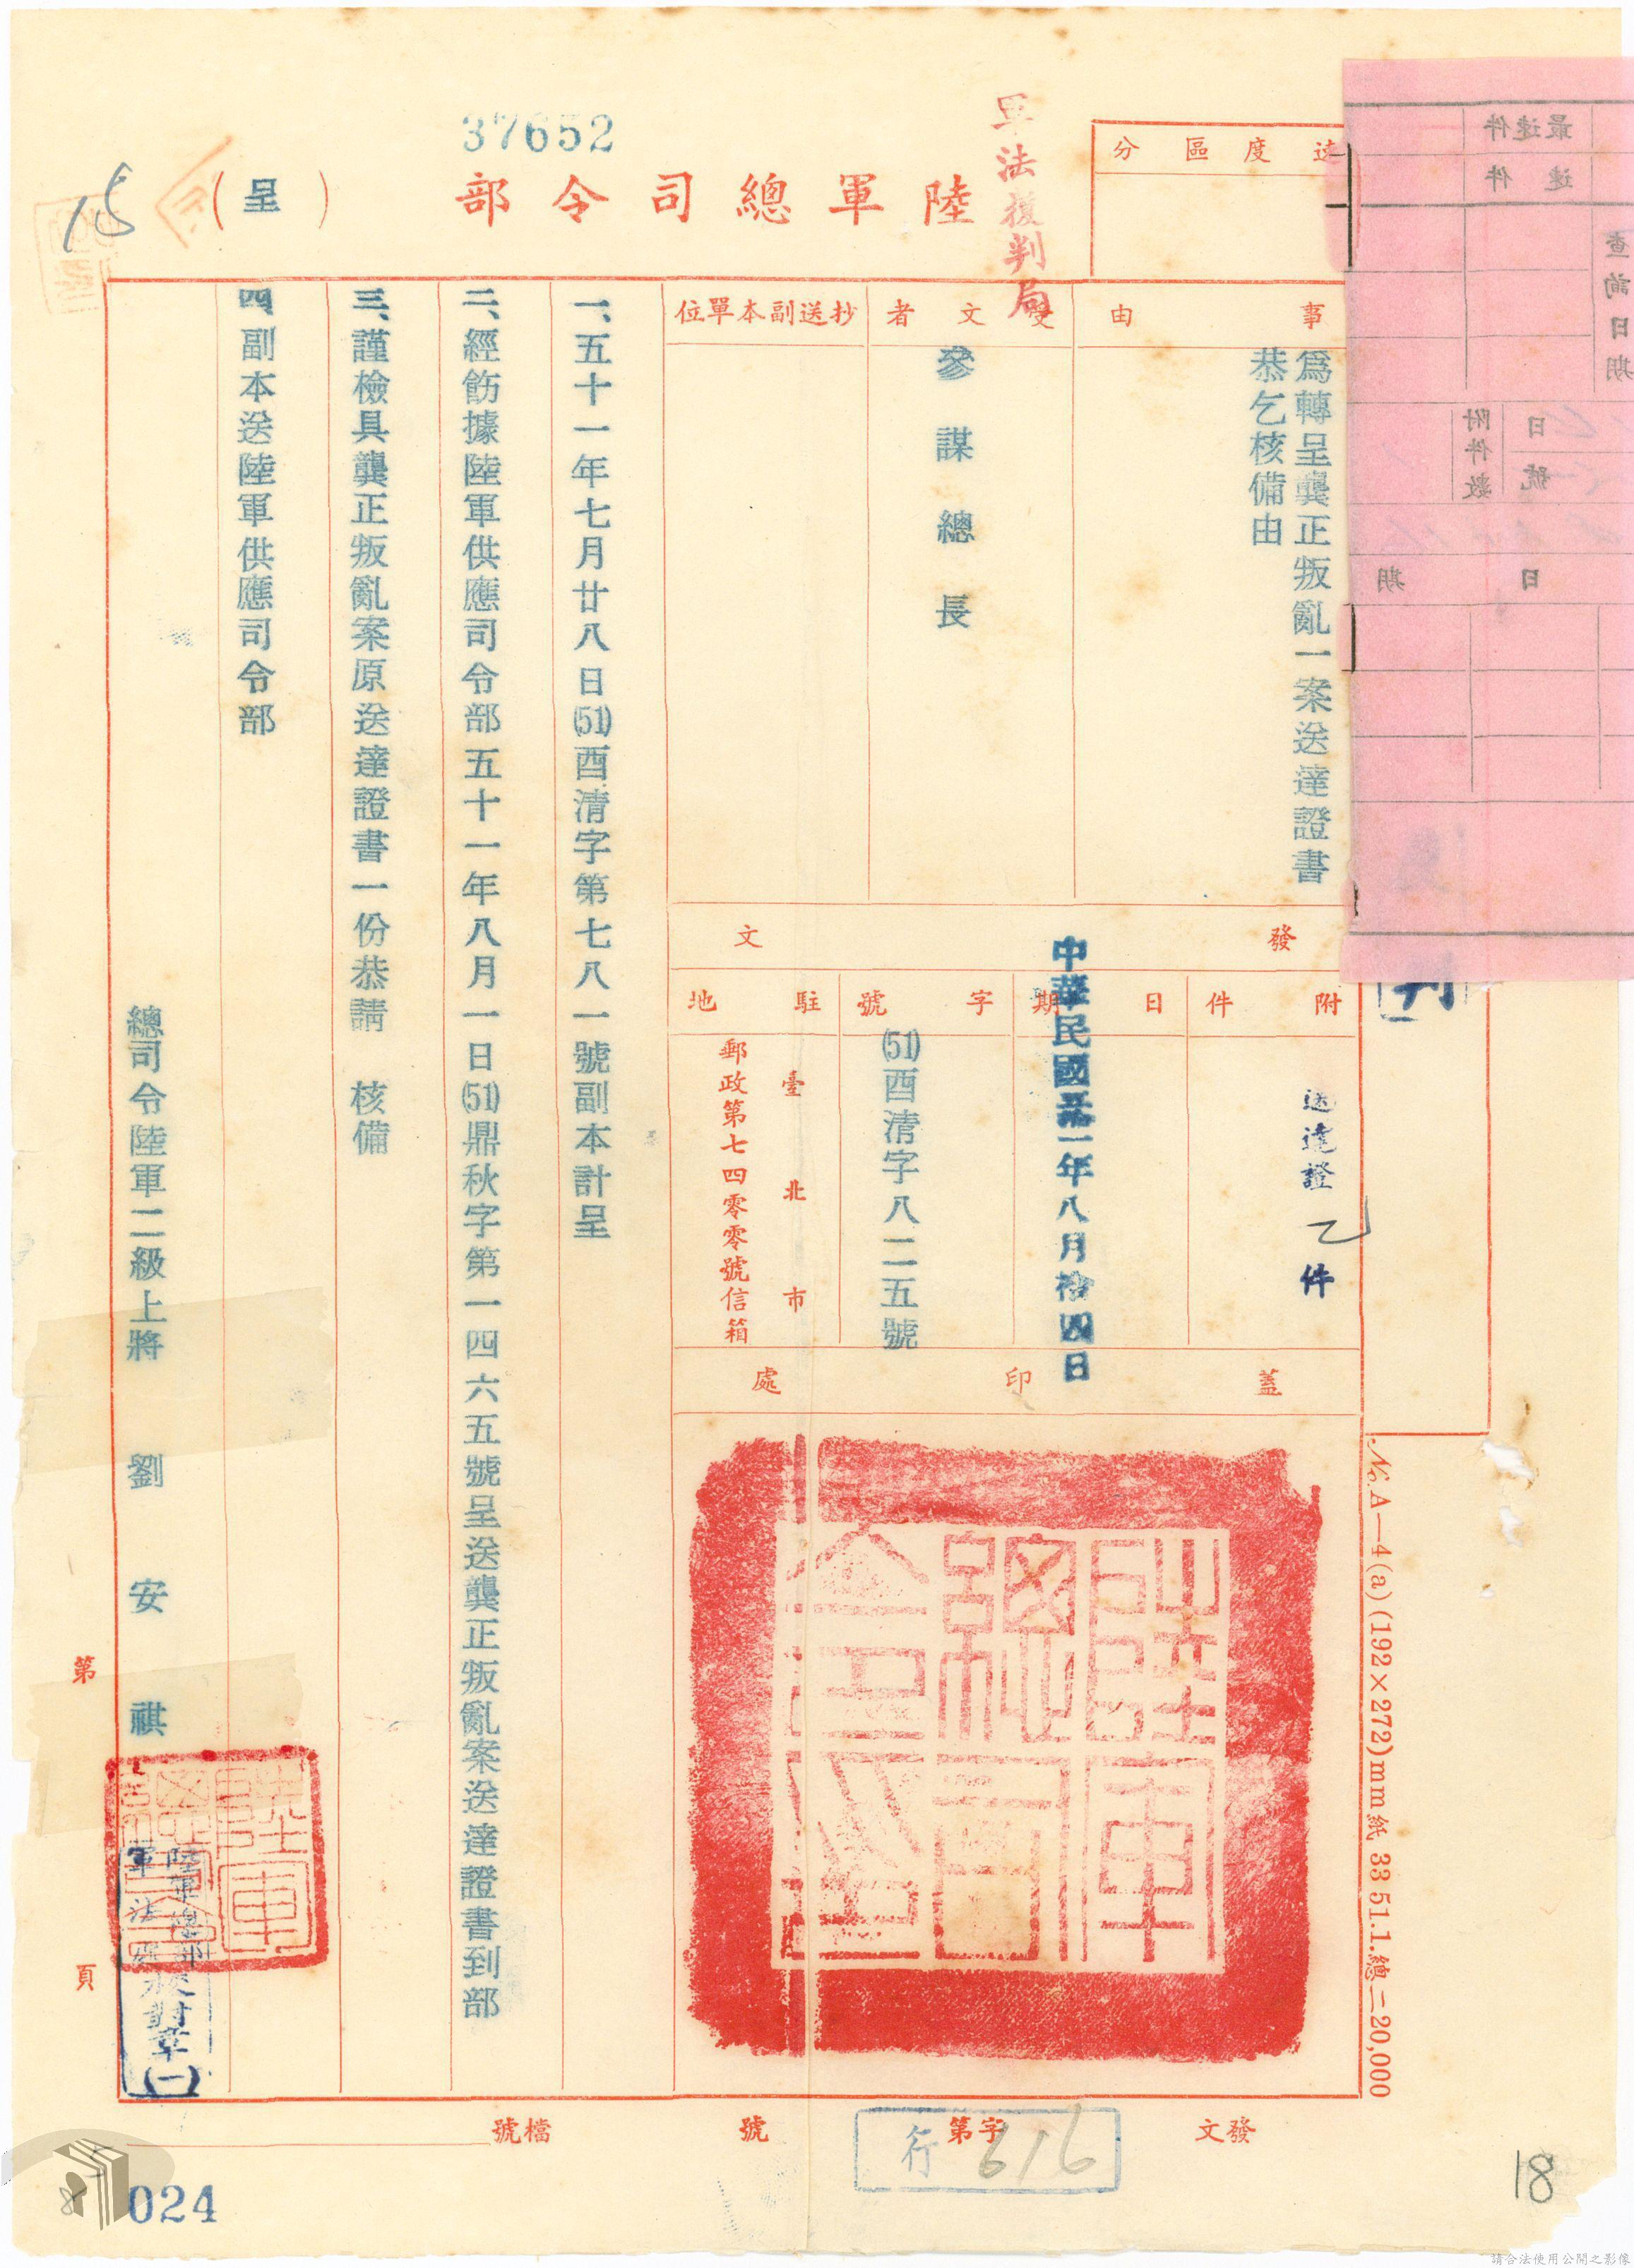 37652
軍法覆判局
陸軍總司令部
（呈）
15
速度區分
事由
為轉呈龔正叛亂一案送達證書
恭乞核備由
受文者
參謀總長
抄送副本單位
發文
附件
送達證乙件
日期
中華民國五十一年八月拾四日
字號
(51)酉清字八二五號
駐地
臺北市
郵政第七四零零號信箱
蓋印處
陸軍總司令部印
一、五十一年七月廿八日(51)酉清字第七八一號副本計呈
二、經飭據陸軍供應司令部五十一年八月一日(51)鼎秋字第一四六五號呈送龔正叛亂案送達證書到部
三、謹檢具龔正叛亂案原送達證書一份恭請 核備
四、副本送陸軍供應司令部
總司令陸軍二級上將 劉安祺
陸軍總司令
陸軍總部
軍法處校對章(一)
第 頁
№ A—4(a)(192×272)mm紙 33 51.1.總二20,000
最速件
速件
查詢日期
附件數
日
號
日期
判
發文
字第 號
行 616
檔號
024
8
18
請合法使用公開之影像